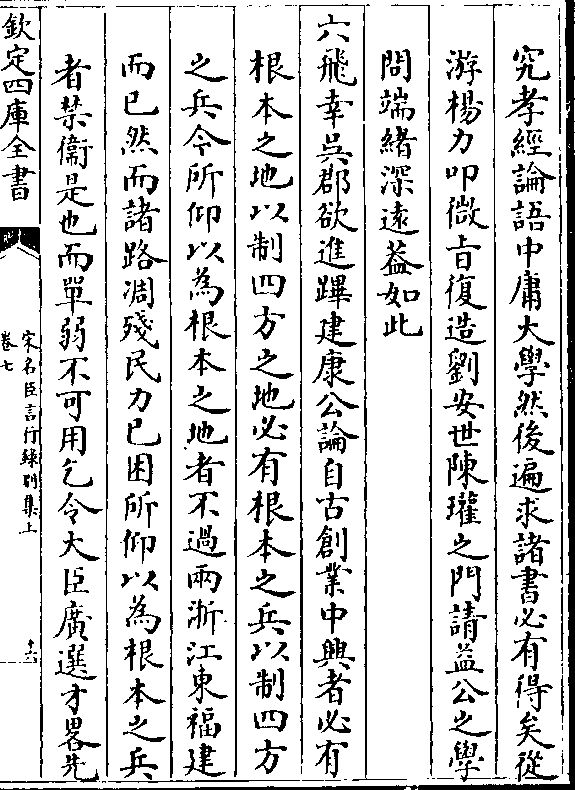 究孝經論語中庸大學然後遍求諸書必有得矣從
游楊力叩微㫖復造劉安世陳瓘之門請益公之學
問端緒深遠葢如此
六飛幸吳郡欲進蹕建康公論自古創業中興者必有
根本之地以制四方之地必有根本之兵以制四方
之兵今所仰以為根本之地者不過兩浙江東福建
而已然而諸路凋殘民力已困所仰以為根本之兵
者禁衞是也而單弱不可用乞令大臣廣選才畧先
欽定四庫全書
宋名臣言行録別集上
卷七
十六